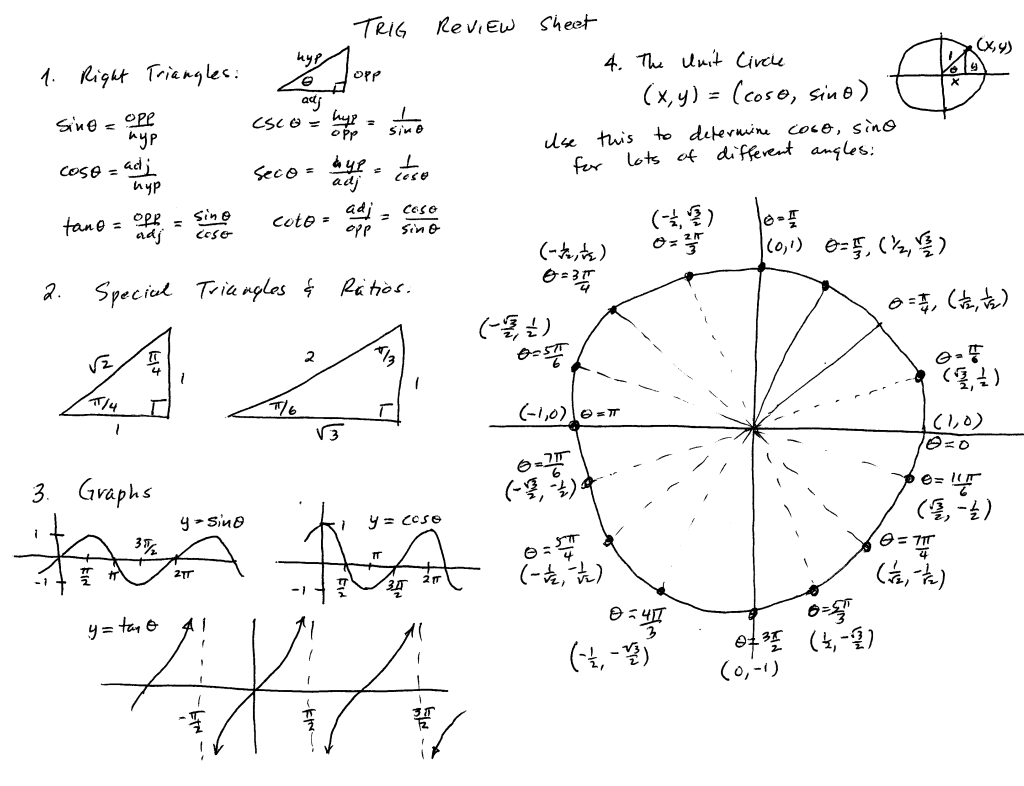 TRIG REVIEW Sheet
1. Right Triangles:
hyp
θ
opp
adj
sinθ = opp/hyp
cscθ = hyp/opp = 1/sinθ
cosθ = adj/hyp
secθ = hyp/adj = 1/cosθ
tanθ = opp/adj = sinθ/cosθ
cotθ = adj/opp = cosθ/sinθ
2. Special Triangles & Ratios:
√2
π/4
1
π/4
1
2
π/3
1
π/6
√3
3. Graphs
y=sinθ
1
-1
π/2
π
3π/2
2π
y=cosθ
1
-1
π/2
π
3π/2
2π
y=tanθ
-π/2
π/2
3π/2
4. The Unit Circle
(x,y) = (cosθ, sinθ)
(x,y)
1
θ
y
x
Use this to determine cosθ, sinθ
for lots of different angles:
θ=π/2
(0,1)
θ=π/3, (1/2, √3/2)
θ=π/4, (1/√2, 1/√2)
θ=π/6
(√3/2, 1/2)
(1,0)
θ=0
θ=11π/6
(√3/2, -1/2)
θ=7π/4
(1/√2, -1/√2)
θ=5π/3
(1/2, -√3/2)
θ=3π/2
(0,-1)
θ=4π/3
(-1/2, -√3/2)
θ=5π/4
(-1/√2, -1/√2)
θ=7π/6
(-√3/2, -1/2)
(-1,0) θ=π
(-√3/2, 1/2)
θ=5π/6
(-1/√2, 1/√2)
θ=3π/4
(-1/2, √3/2)
θ=2π/3